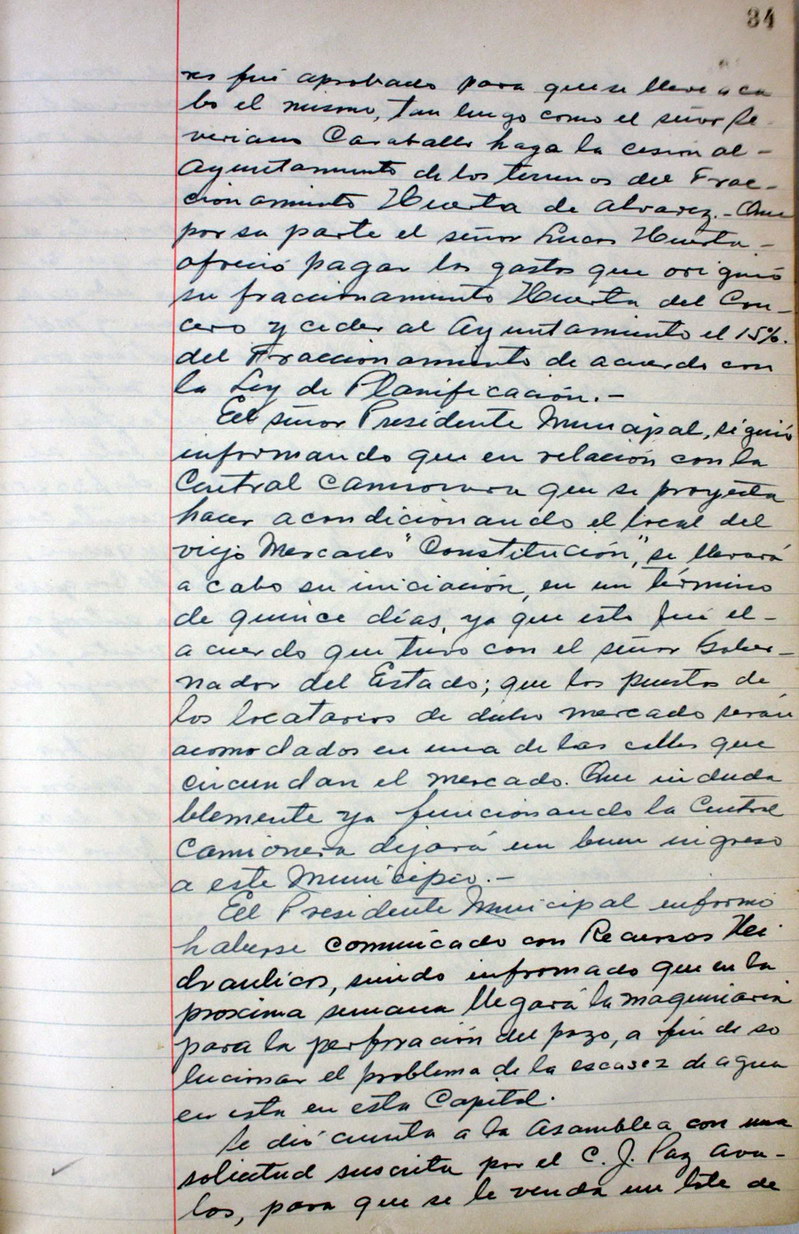 34
res fué aprobado para que se lleve a ca
bo el mismo, tan luego como el señor Se-
veriano Caraballo haga la cesión al-
Ayuntamiento de los terrenos del Frac-
cionamiento Huerta de Alvarez.- Que
por su parte el señor Lucas Huerta-
ofreció pagar los gastos que originó
su fraccionamiento Huerta del Con-
cero y ceder al Ayuntamiento el 15%.
del Fraccionamiento de acuerdo con
la Ley de Planificación.-
El señor Presidente Municipal, siguió
informando que en relación con la
Central Camionera que se proyecta
hacer acondicionando el local del
viejo Mercado "Constitución", se llevará
a cabo su iniciación, en un término
de quince días, ya que este fué el-
acuerdo que tuvo con el señor Gober-
nador del Estado; que los puestos de
los locatarios de dicho mercado serán
acomodados en una de las calles que
circundan el mercado. Que induda
blemente ya funcionando la Central
Camionera dejará un buen ingreso
a este Municipio.-
El Presidente Municipal informó
haberse comunicado con Recursos Hi
draulicos, siendo informado que en la
proxima semana llegará la maquinaria
para la perforación del pozo, a fin de so
lucionar el problema de la escasez de agua
en esta en esta Capital.
Se dió cuenta a la Asamblea con una
solicitud suscrita por el C. J. Paz Ava-
los, para que se le venda un lote de